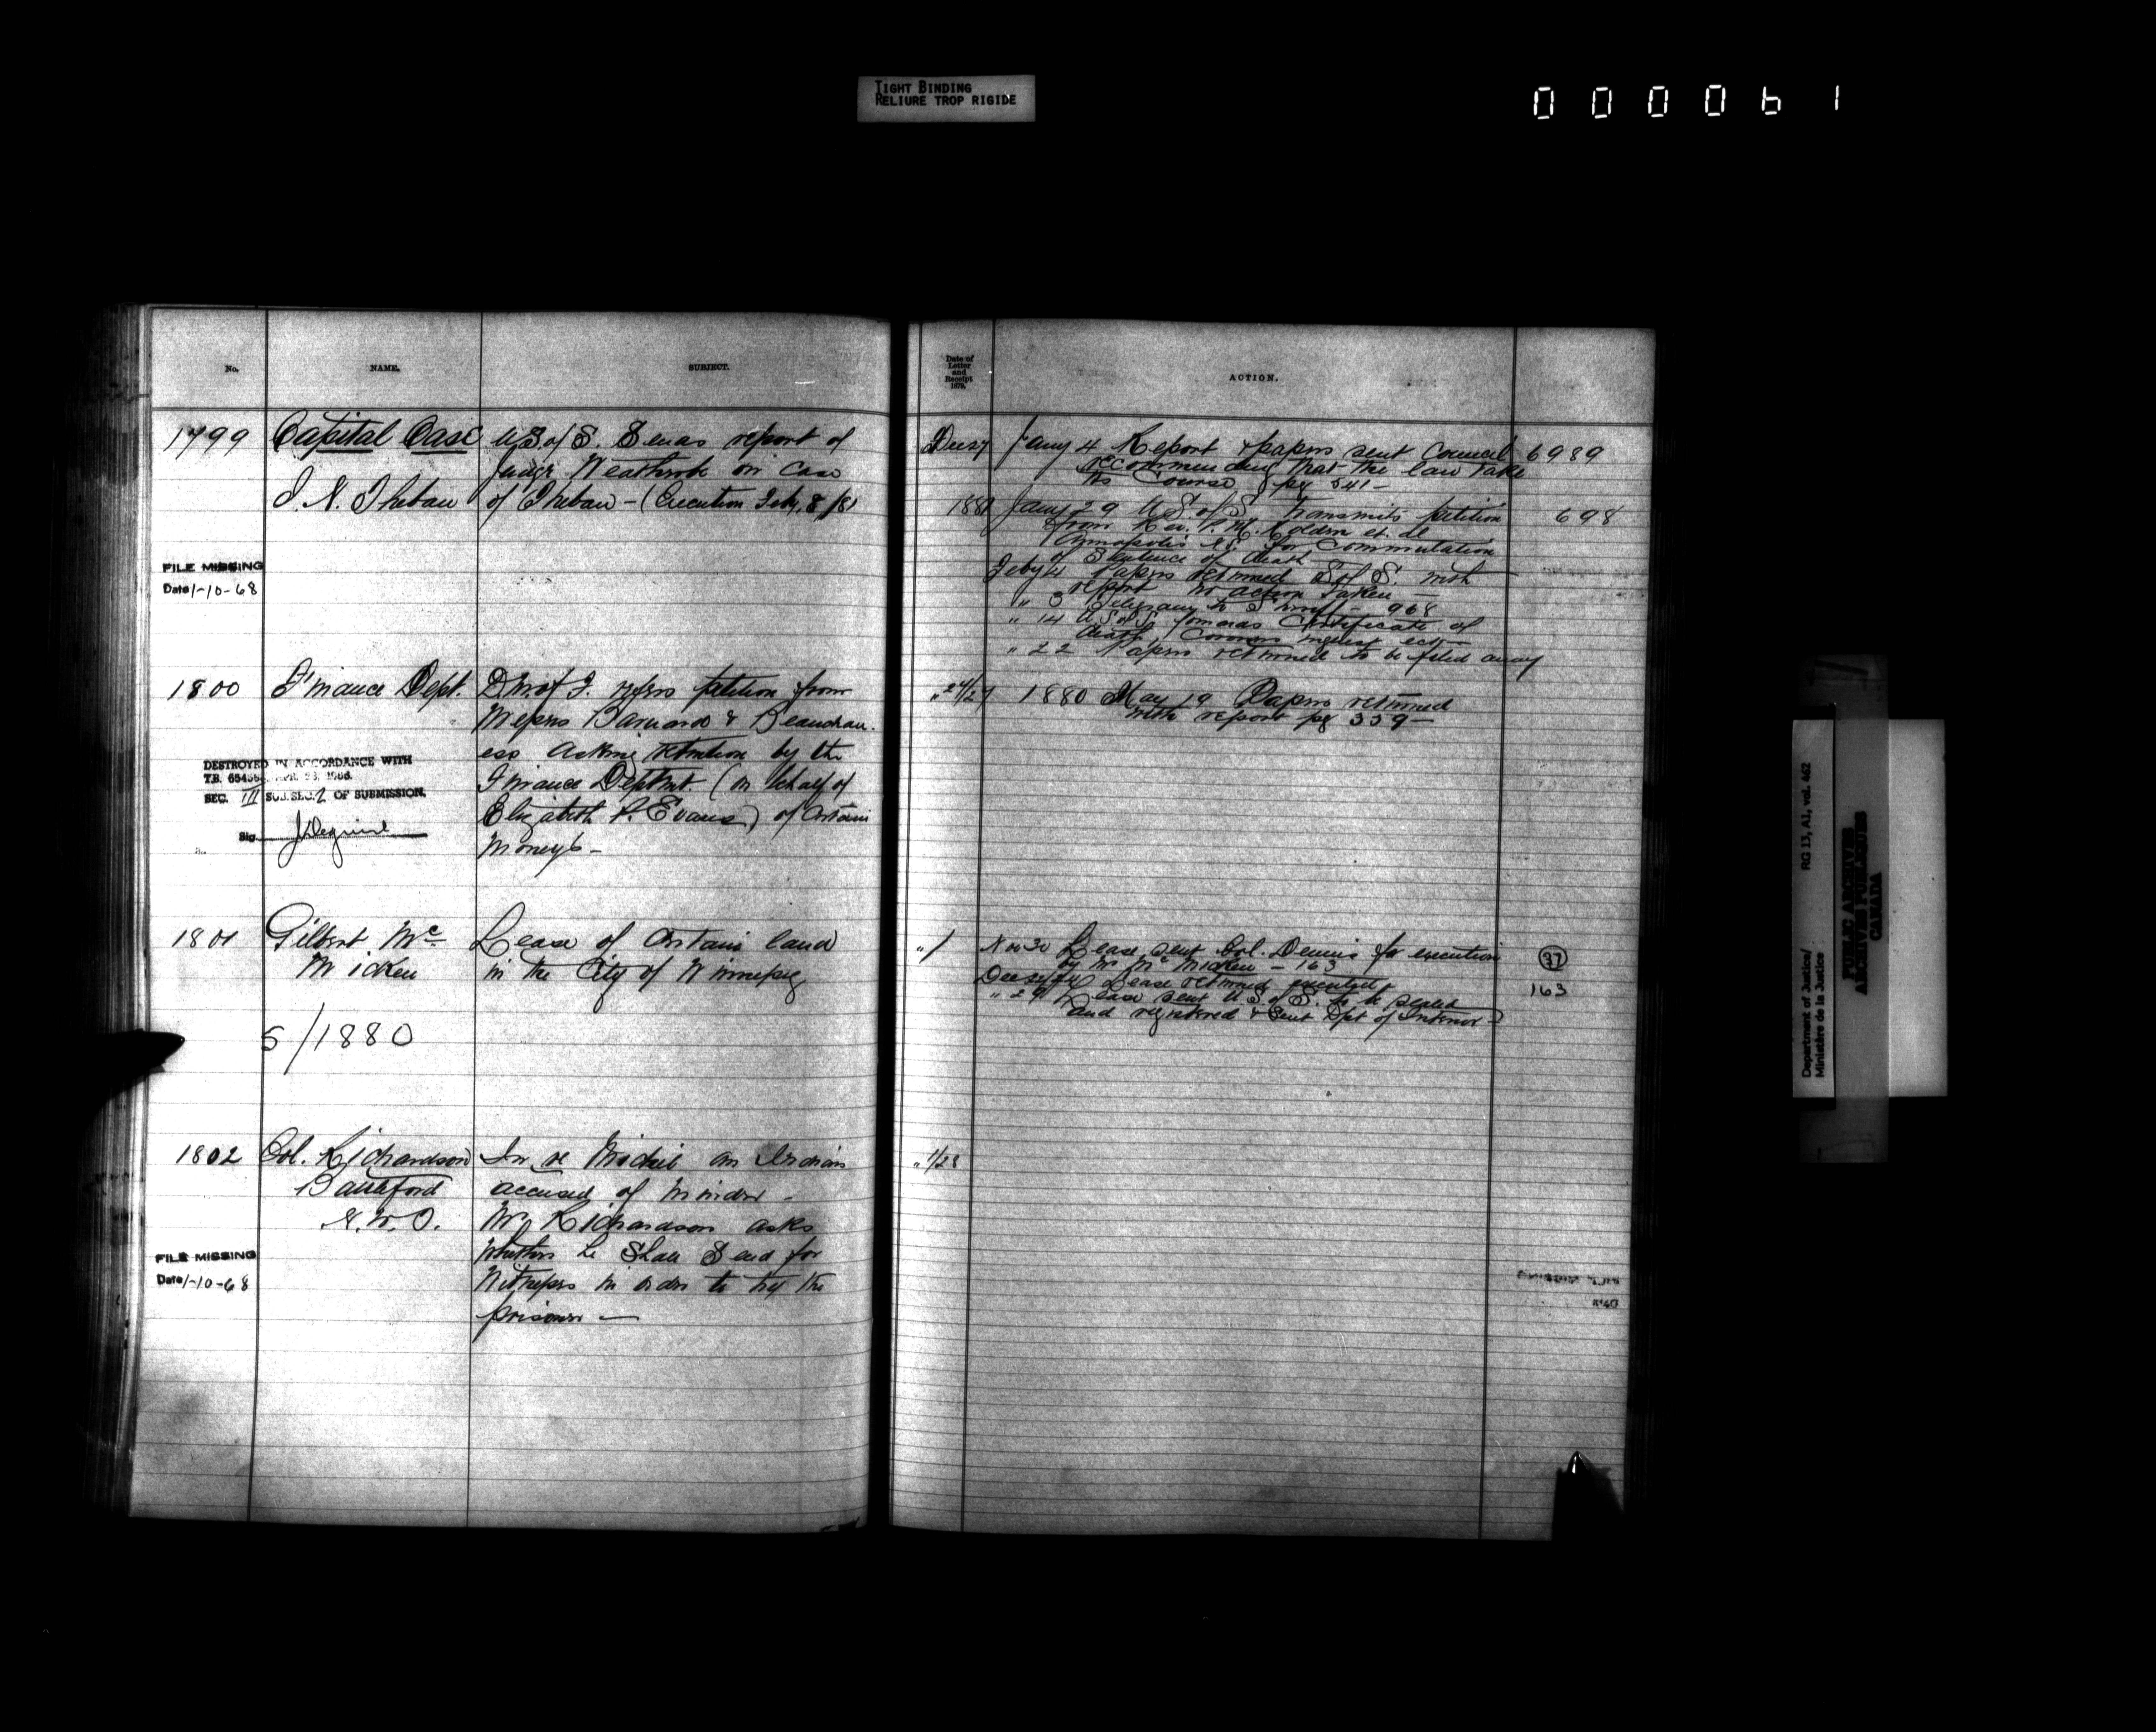 TIGHT BINDING
RELIURE TROP RIGIDE
000061
No.
NAME.
SUBJECT.
1799
Capital Case
J. N. Thebau
U S of S. Sends report of
Judge Weatherbe on case
of Thebau - (Execution Feby. 8/81
FILE MISSING
Date 1-10-68
1800
Finance Dept.
D M of F. refers petition from
Messrs Barnard & Beauchau-
ess asking retention by the
Finance Deptmt. (on behalf of
Elizabeth P. Evans) of certain
Moneys -
DESTROYED IN ACCORDANCE WITH
T.B.
SEC. III SUB.SEC. 2 OF SUBMISSION.
Sig.
1801
Gilbert Mc
Micken
Lease of certain land
in the City of Winnipeg
5/1880
1802
Col. Richardson
Battleford
N.W.T.
In re an Indian
accused of Murder -
Mr Richardson asks
whether he shall send for
witnesses in order to try the
prisoner -
FILE MISSING
Date 1-10-68
Date of
Letter
and
Receipt
1879.
ACTION.
Dec 27
Jany 4 Report & papers sent Council 6989
recommending that the law take
its course pg 541 -
1881 Jany 29 U S of S transmits petition 698
from Rev. P. M. Holden et al
Annapolis N.S. for commutation
of Sentence of death
Feby 4 Papers returned S of S. with
report no action taken -
" 3 Telegram to Sheriff - 968
" 14 U S of S forwards Certificate of
death, Coroners inquest
" 22 Papers returned to be filed away
" 24/27 1880 May 19 Papers returned
with report pg 339 -
" 1 Nov 30 Lease sent Col. Dennis for execution 37
by Mr McMicken - 163
Lease returned executed 163
" 29 Lease sent U. S. of S. to be sealed
and registered & sent Dpt of Interior -
" 1/28
Department of Justice/
Ministère de la Justice
RG 13, A1, vol. 462
PUBLIC ARCHIVES
ARCHIVES PUBLIQUES
CANADA